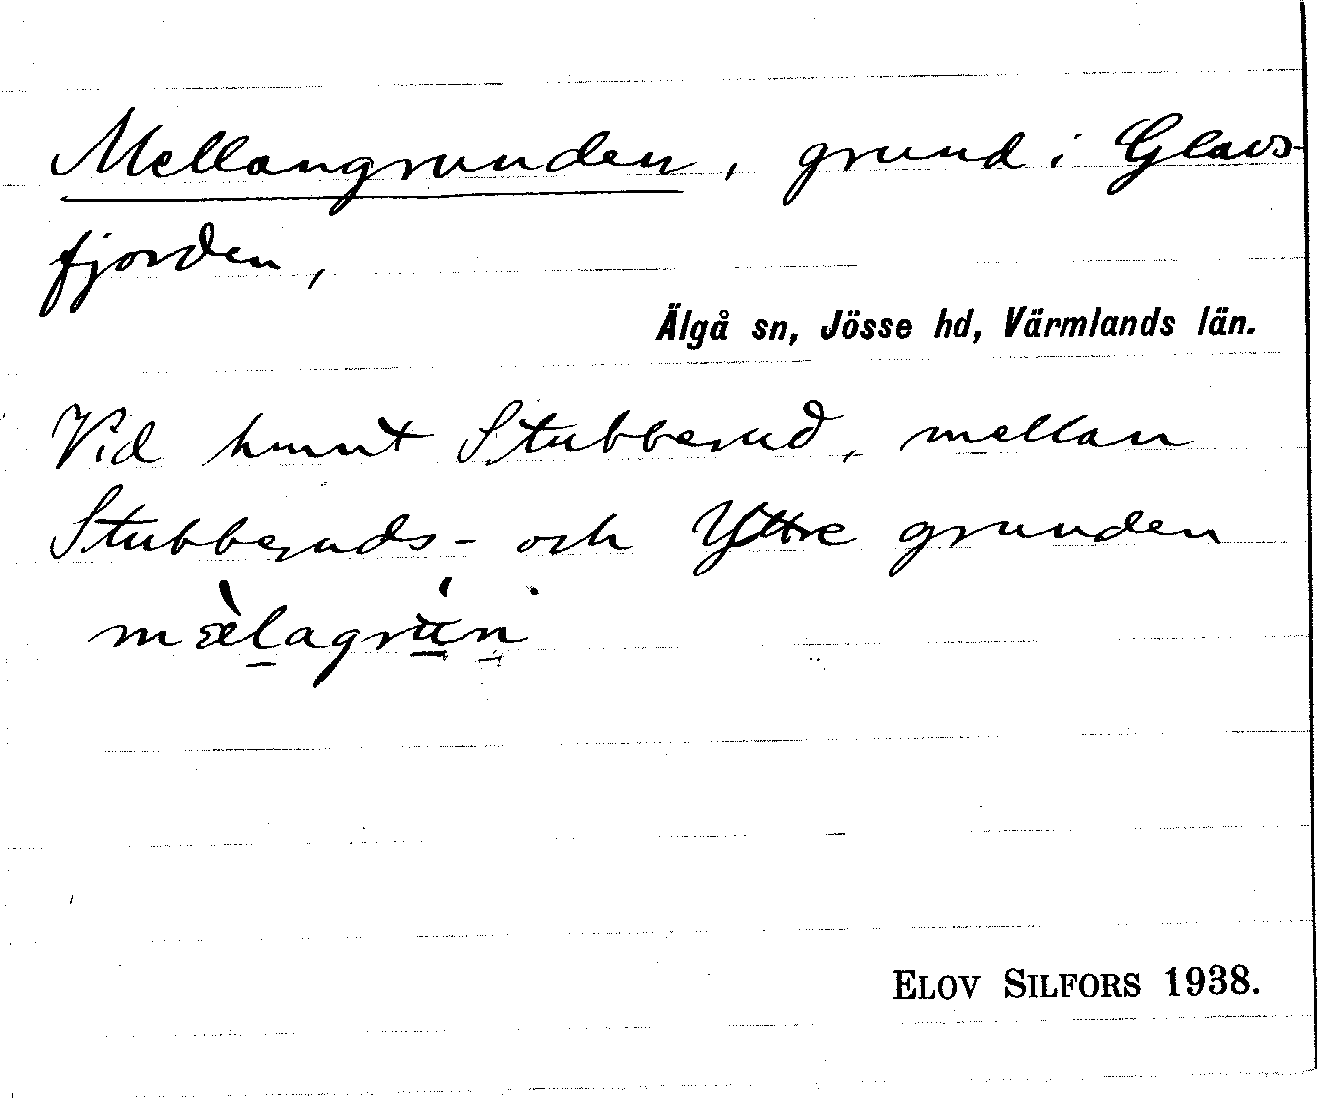 Mellangrunden, grund i Glavs-
fjorden,
Älgå sn, Jösse hd, Värmlands län.
Vid hmnt Stubberud, mellan
Stubberuds- och Yttre grunden
mæ̀l̲agrú̲n
ELOV SILFORS 1938.